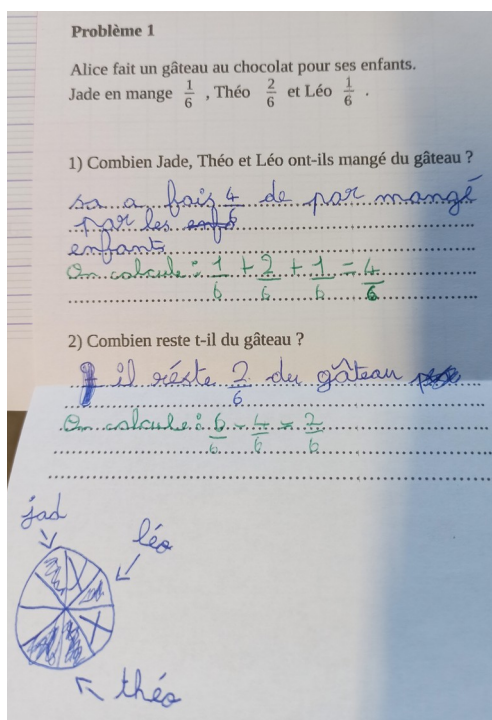 Problème 1
Alice fait un gâteau au chocolat pour ses enfants.
Jade en mange 1/6 , Théo 2/6 et Léo 1/6 .
1) Combien Jade, Théo et Léo ont-ils mangé du gâteau ?
sa a fais 4/6 de par mangé
par les
enfants
On calcule : 1/6 + 2/6 + 1/6 = 4/6
2) Combien reste t-il du gâteau ?
il réste 2/6 du gâteau
On calcule : 6/6 - 4/6 = 2/6
jad
léo
théo